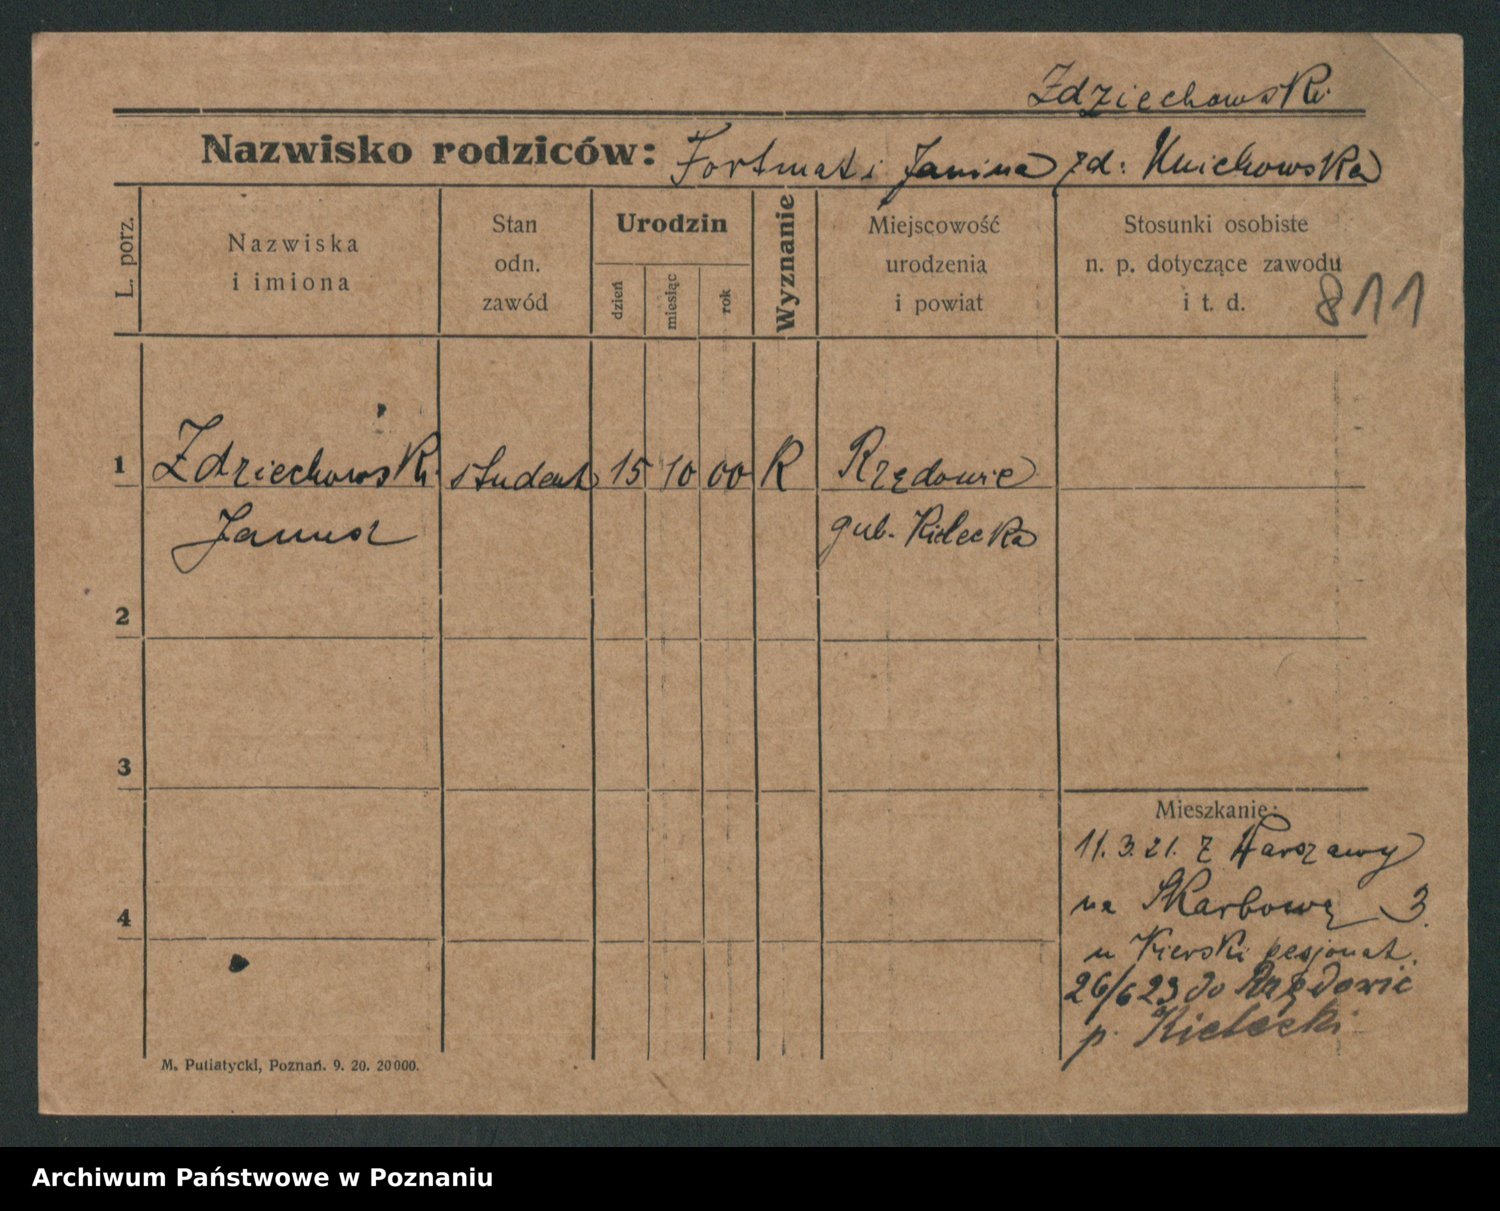 Zdziechowski
Nazwisko rodziców: Fortunat i Janina zd: Kniehowska
L. porz.
Nazwiska i imiona
Stan odn. zawód
Urodzin
dzień
miesiąc
rok
Wyznanie
Miejscowość urodzenia i powiat
Stosunki osobiste n. p. dotyczące zawodu i t. d.
811
1 Zdziechowski student 15 10 00 R Rzędowie
Janusz gub. Kielecka
2
3
Mieszkanie:
11.3.21. z Warszawy
4
na Skarbową 3.
u Kierski pesjonat.
26/6 23 do Rzędowic
p. Kielecki
M. Putiatycki, Poznań. 9. 20. 20000.
Archiwum Państwowe w Poznaniu